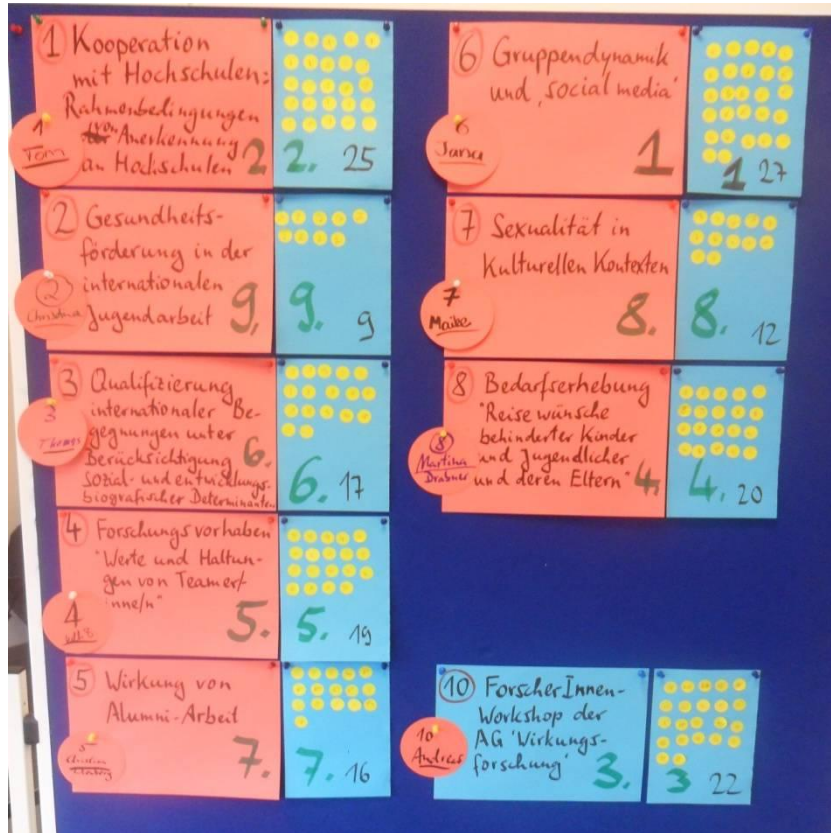 1 Kooperation
mit Hochschulen:
Rahmenbedingungen
von Anerkennung
an Hochschulen 2
1
Tom
2. 25
2 Gesundheits-
förderung in der
internationalen
Jugendarbeit 9.
2
Christina
9. 9
3 Qualifizierung
internationaler Be-
gegnungen unter
Berücksichtigung 6.
Sozial- und entwicklungs-
biografischer Determinanten
3
Thomas
6. 17
4 Forschungsvorhaben
"Werte und Haltun-
gen von Teamer/
inne/n"
5.
4
5. 19
5 Wirkung von
Alumni-Arbeit
7.
5
7. 16
6 Gruppendynamik
und 'social media'
1
6
Jana
1 27
7 Sexualität in
Kulturellen Kontexten
8.
7
Maike
8. 12
8 Bedarfserhebung
"Reisewünsche
behinderter Kinder
und Jugendlicher
und deren Eltern" 4.
8
Martina
Drabner
4. 20
10 ForscherInnen-
Workshop der
AG 'Wirkungs-
forschung' 3.
10
Andreas
3 22